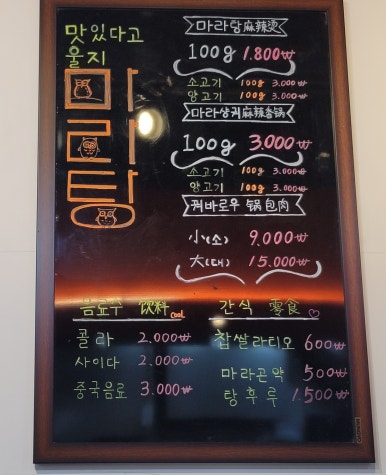 맛있다고
울지
마
라
탕
마라탕麻辣烫
100g 1.800₩
소고기 100g 3.000₩
양고기 100g 3.000₩
마라샹궈麻辣香锅
100g 3.000₩
소고기 100g 3.000₩
양고기 100g 3.000₩
꿔바로우 锅包肉
小(소) 9.000₩
大(대) 15.000₩
음료수 饮料 cool
콜라 2.000₩
사이다 2.000₩
중국음료 3.000₩
간식 零食
찹쌀라티오 600₩
마라곤약 500₩
탕후루 1.500₩